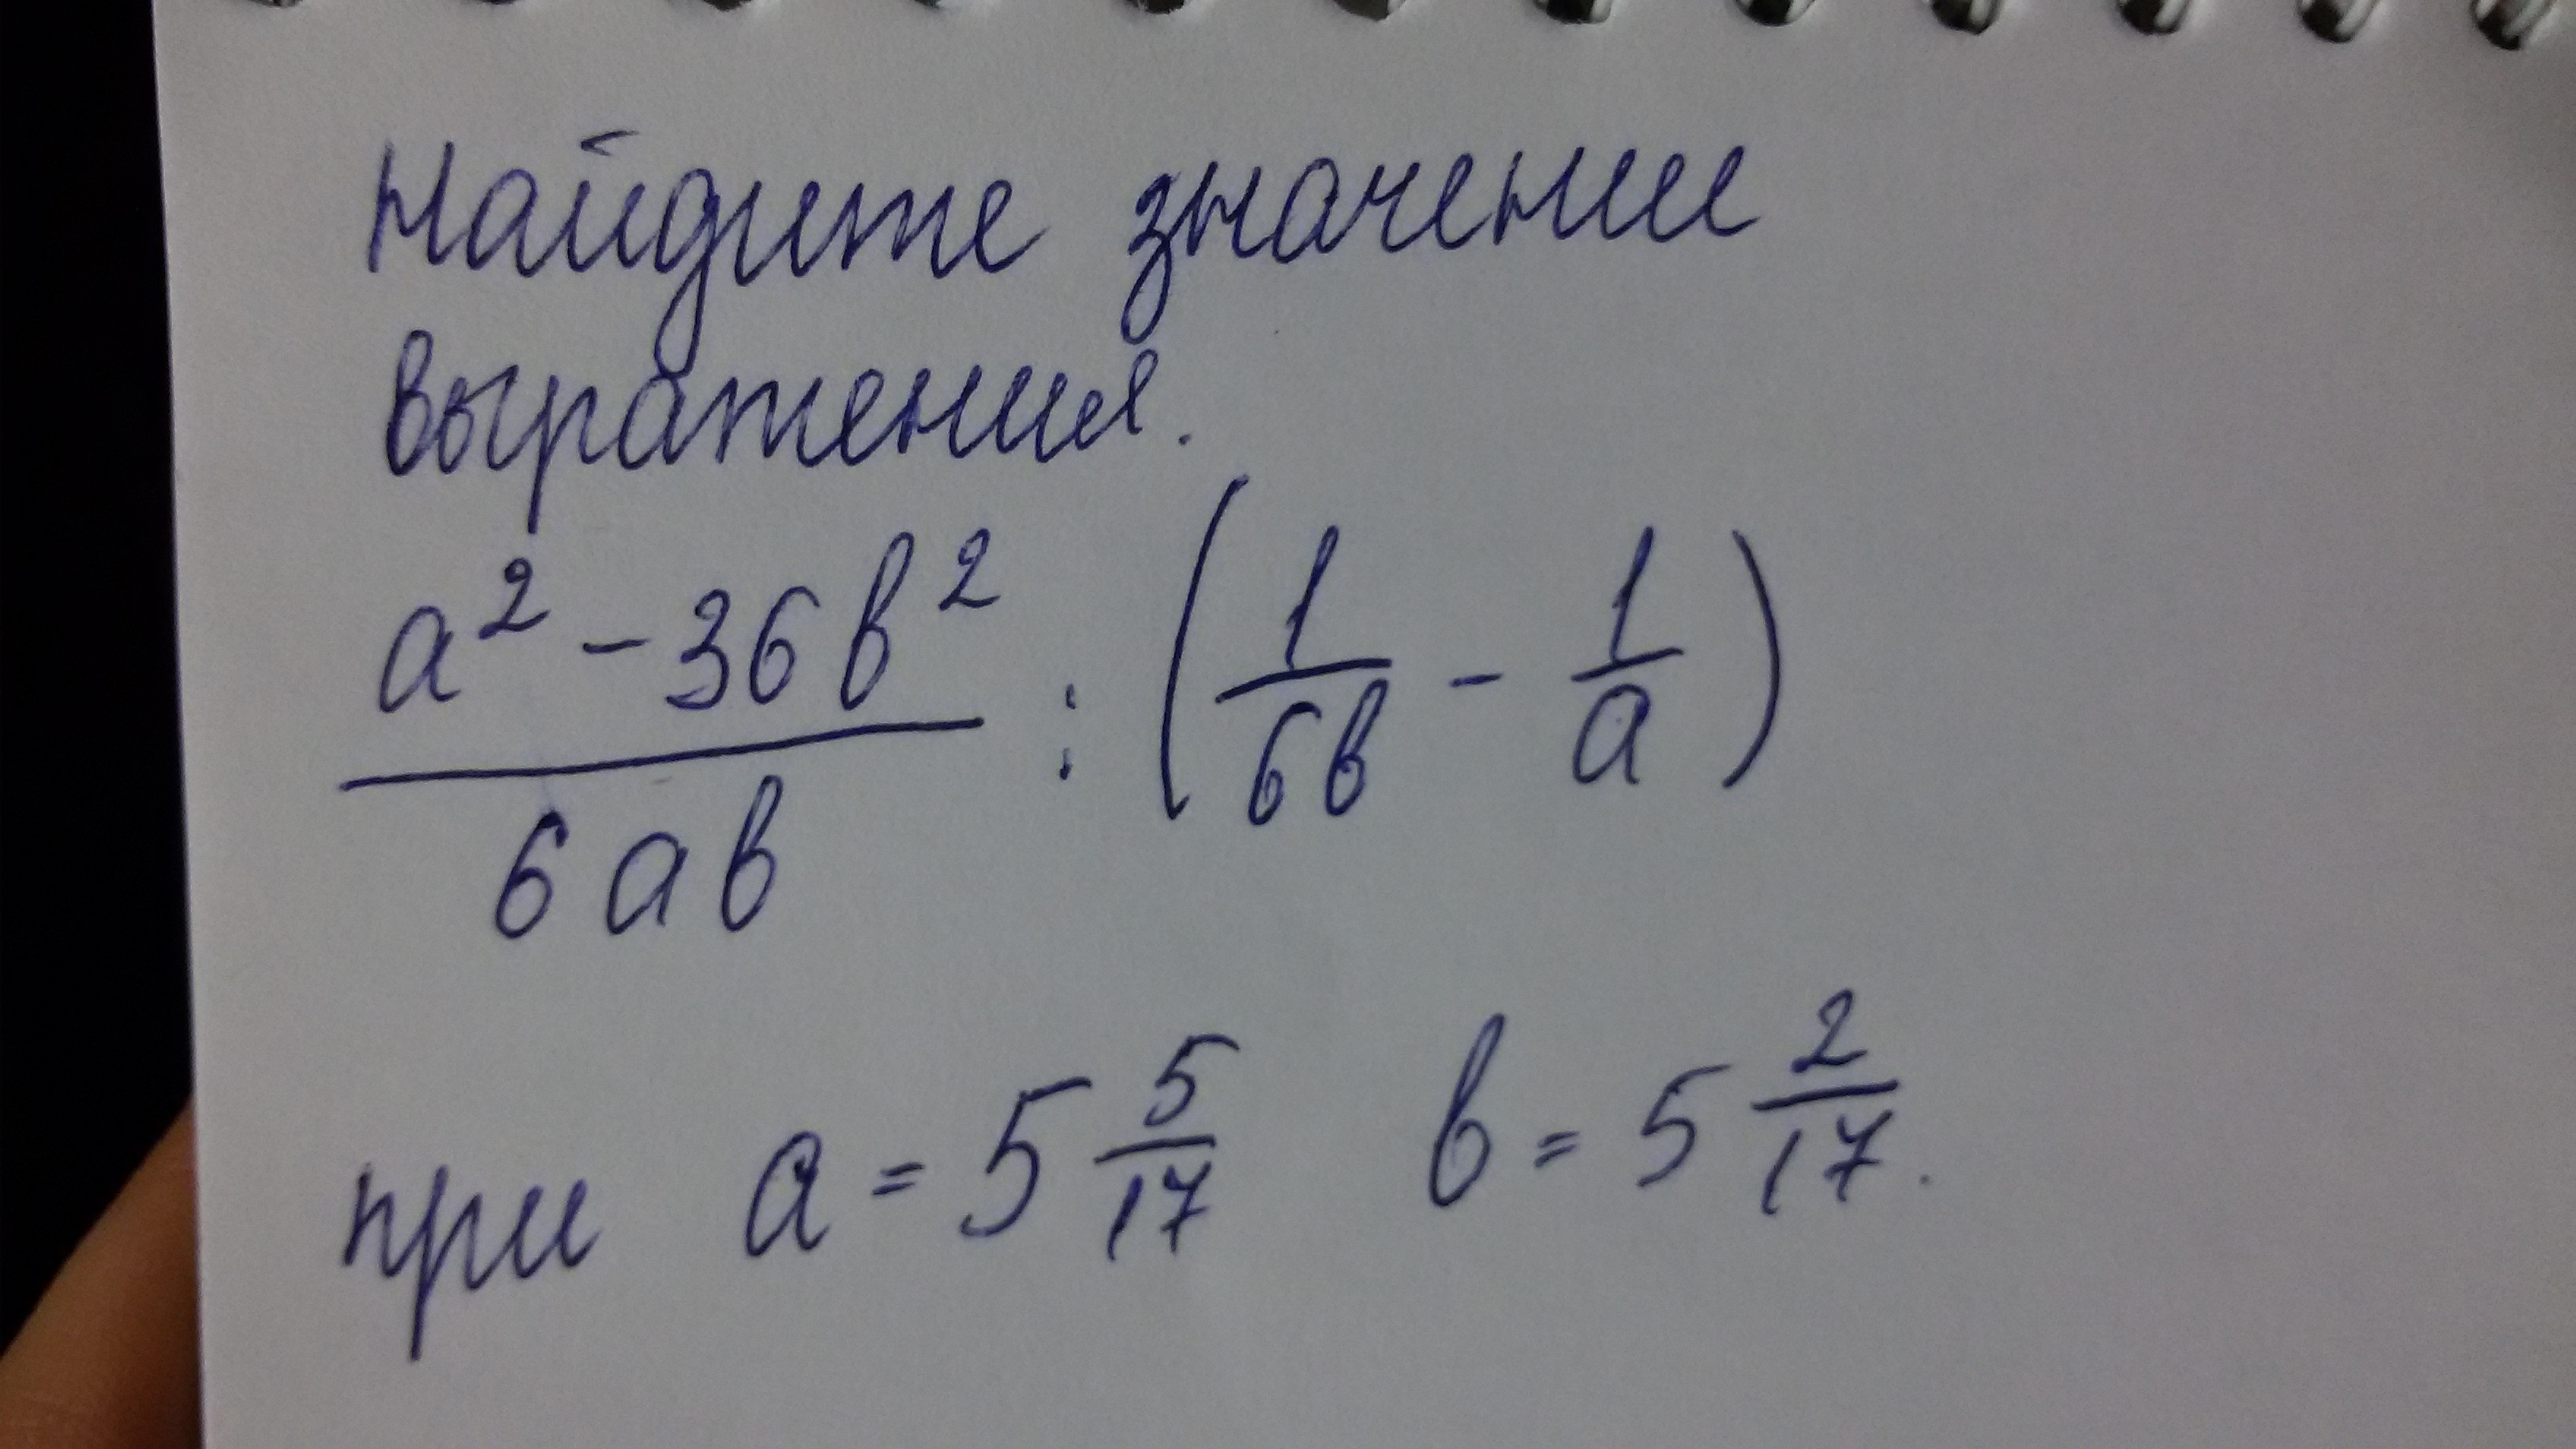 Найдите значение
выражения.
a² - 36b² / 6ab : (1/6b - 1/a)
при a = 5 5/17 b = 5 2/17.